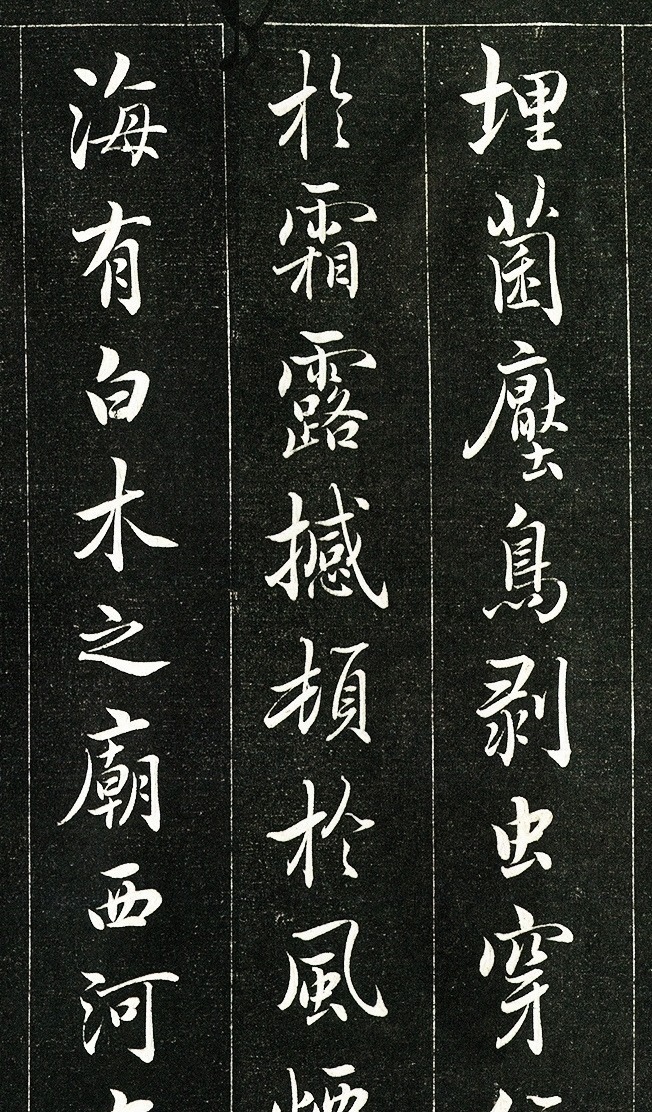 埋菌壓鳥剝虫穿
於霜露撼頓於風
海有白木之廟西河